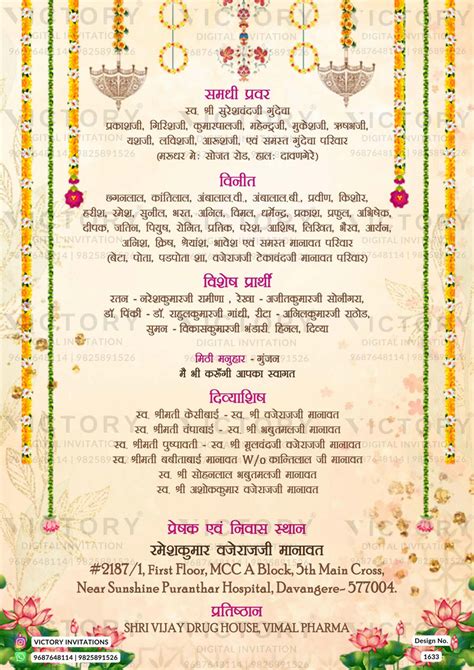 VICTORY
DIGITAL INVITATION
9687648114 | 9825891526
समधी प्रवर
स्व. श्री सुरेशचंदजी गुंदेचा
प्रकाशजी, गिरिशजी, कुमारपालजी, महेन्द्रजी, मुकेशजी, ऋषभजी,
यशजी, लविशजी, आरूशजी, एवं समस्त गुंदेचा परिवार
(मरूधर मे: सोजत रोड, हाल: दावणगेरे)
विनीत
छगनलाल, कांतिलाल, अंबालाल.वी., अंबालाल.बी., प्रवीण, किशोर,
हरीश, रमेश, सुनील, भरत, अनिल, विमल, धर्मेन्द्र, प्रकाश, प्रफुल, अभिषेक,
दीपक, जतिन, पियुष, रोनित, प्रतिक, परेश, आशिष, लिखित, भैरव, आर्यन,
अनिश, क्रिष, श्रेयांश, भावेश एवं समस्त मानावत परिवार)
(बेटा, पोता, पडपोता शा. वजेराजजी टेकावंदजी मानावत परिवार)
विशेष प्रार्थी
रतन - नरेशकुमारजी रामीणा , रेखा - अजीतकुमारजी सोनीमरा,
डॉ. पिंकी - डॉ. राहुलकुमारजी गांधी, रीटा - अनिलकुमारजी राठोड,
सुमन - विकासकुमारजी भंडारी, हिनल, दिव्या
मिठी मनुहार - गुंजन
मै भी करूँगी आपका स्वागत
दिव्याशिष
स्व. श्रीमती केसीबाई - स्व. श्री वजेराजजी मानावत
स्व. श्रीमती चंपाबाई - स्व. श्री भबुतमलजी मानावत
स्व. श्रीमती पुष्पावती - स्व. श्री मूलचंदजी मानावत
स्व. श्रीमती बबीताबाई मानावत W/o कान्तिलाल जी मानावत
स्व. श्री सोहनलाल भबुतमलजी मानावत
स्व. श्री अशोककुमार वजेराजजी मानावत
प्रेषक एवं निवास स्थान
रमेशकुमार वजेराजजी मानावत
#2187/1, First Floor, MCC A Block, 5th Main Cross,
Near Sunshine Puranthar Hospital, Davangere- 577004.
प्रतिष्ठान
SHRI VIJAY DRUG HOUSE, VIMAL PHARMA
VICTORY INVITATIONS
9687648114 | 9825891526
Design No.
1633